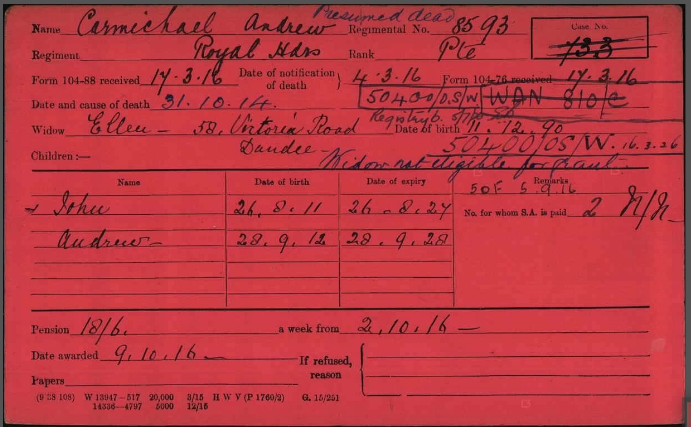 Presumed dead
Name Carmichael Andrew Regimental No. 8593 Case No.
Regiment Royal Hdrs Rank Pte 733
Form 104-88 received 17.3.16 Date of notification of death } 4.3.16 Form 104-76 received 17.3.16
Date and cause of death 31.10.14. 50400/O.S/W. WAN 810/C
Widow Ellen - 58, Victoria Road Date of birth 11.12.90
Dundee - 50400/OS/W. 16.3.26
Children:— Widow not eligible for grant.
Name Date of birth Date of expiry Remarks
50F 5.9.16
John 26.8.11 26.8.27 No. for whom S.A. is paid 2 N/N
Andrew - 28.9.12 28.9.28
Pension 18/6. a week from 2.10.16 -
Date awarded 9.10.16 - If refused, reason
Papers
(9 38 108) W 13947—517 20,000 3/15 H W V (P 1760/2) G. 15/251
14336—4797 5000 12/15